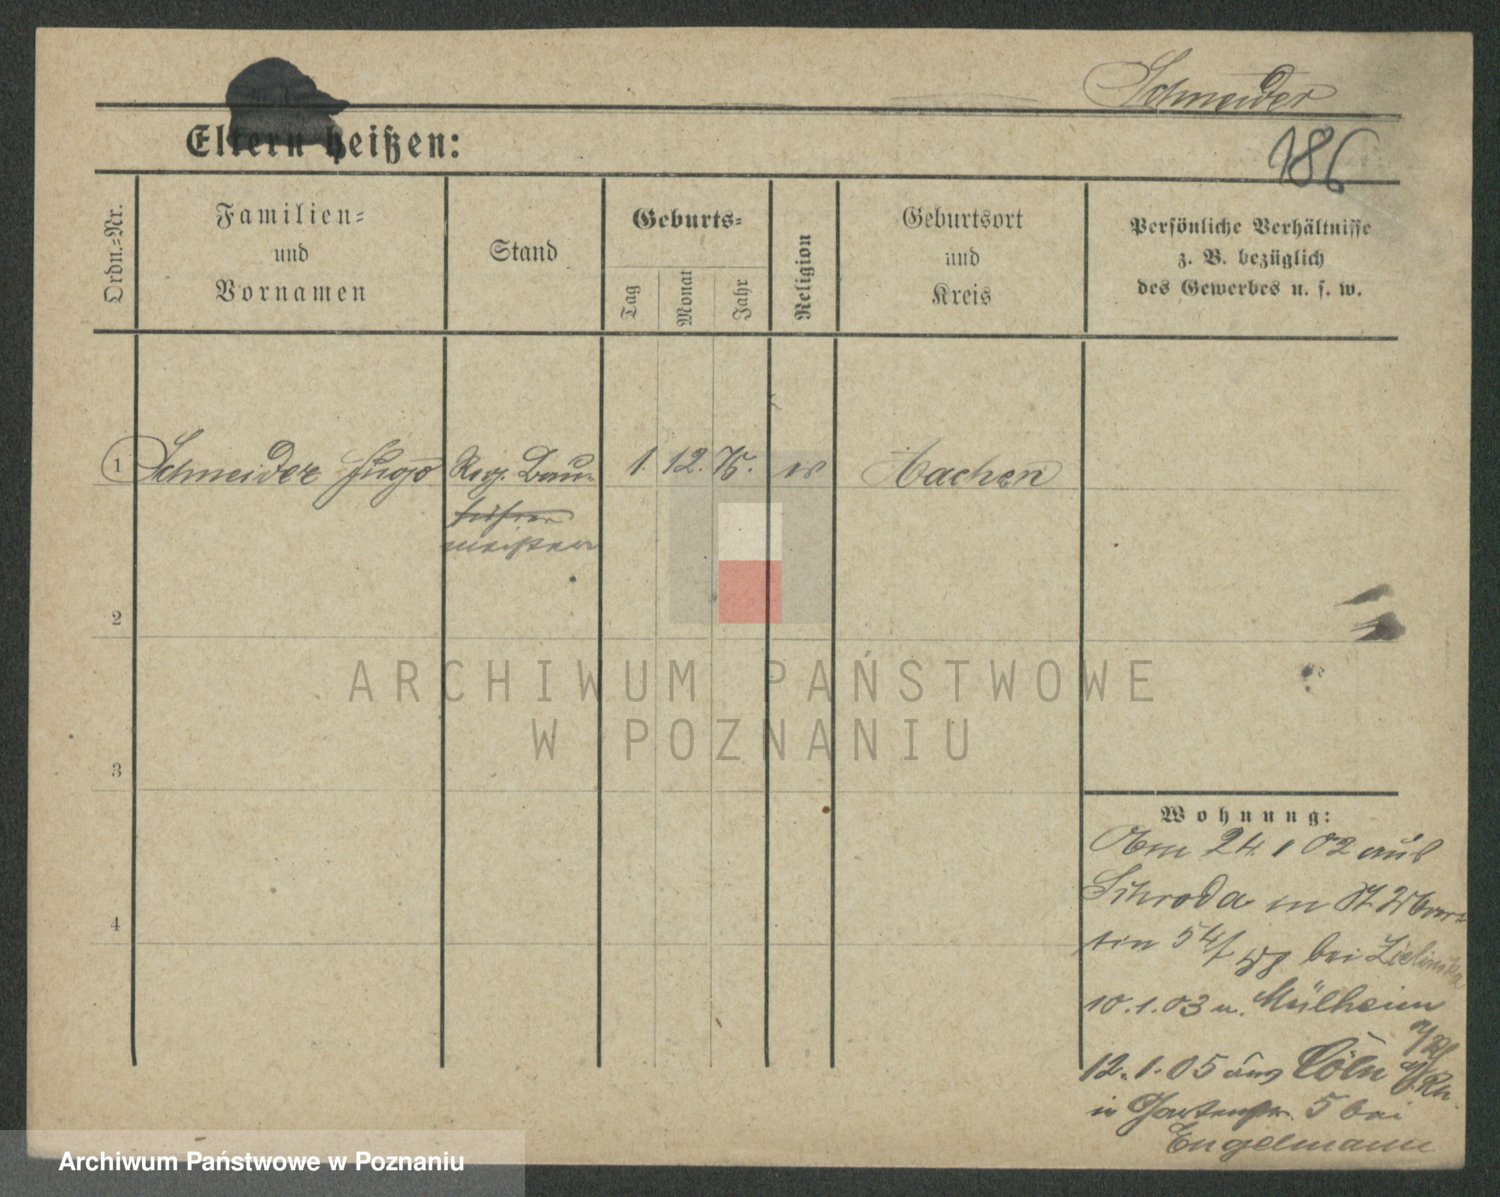 Schneider
186
Eltern heißen:
Ordn.=Nr.
Familien=
und
Vornamen
Stand
Geburts=
Tag
Monat
Jahr
Religion
Geburtsort
und
Kreis
Persönliche Verhältnisse
z. B. bezüglich
des Gewerbes u. s. w.
1 Schneider Hugo Reg. Bau- 1. 12. 75. Aachen
führer
meister
2
3
4
ARCHIWUM PAŃSTWOWE
W POZNANIU
Wohnung:
24. 1 02 aus
Schroda in St
tin 54/ bei
10.1.03 n. Mülheim
a/Rh
12.1.05 aus Cöln a/Rh.
in Gartenstr. 5 bei
Engelmann
Archiwum Państwowe w Poznaniu